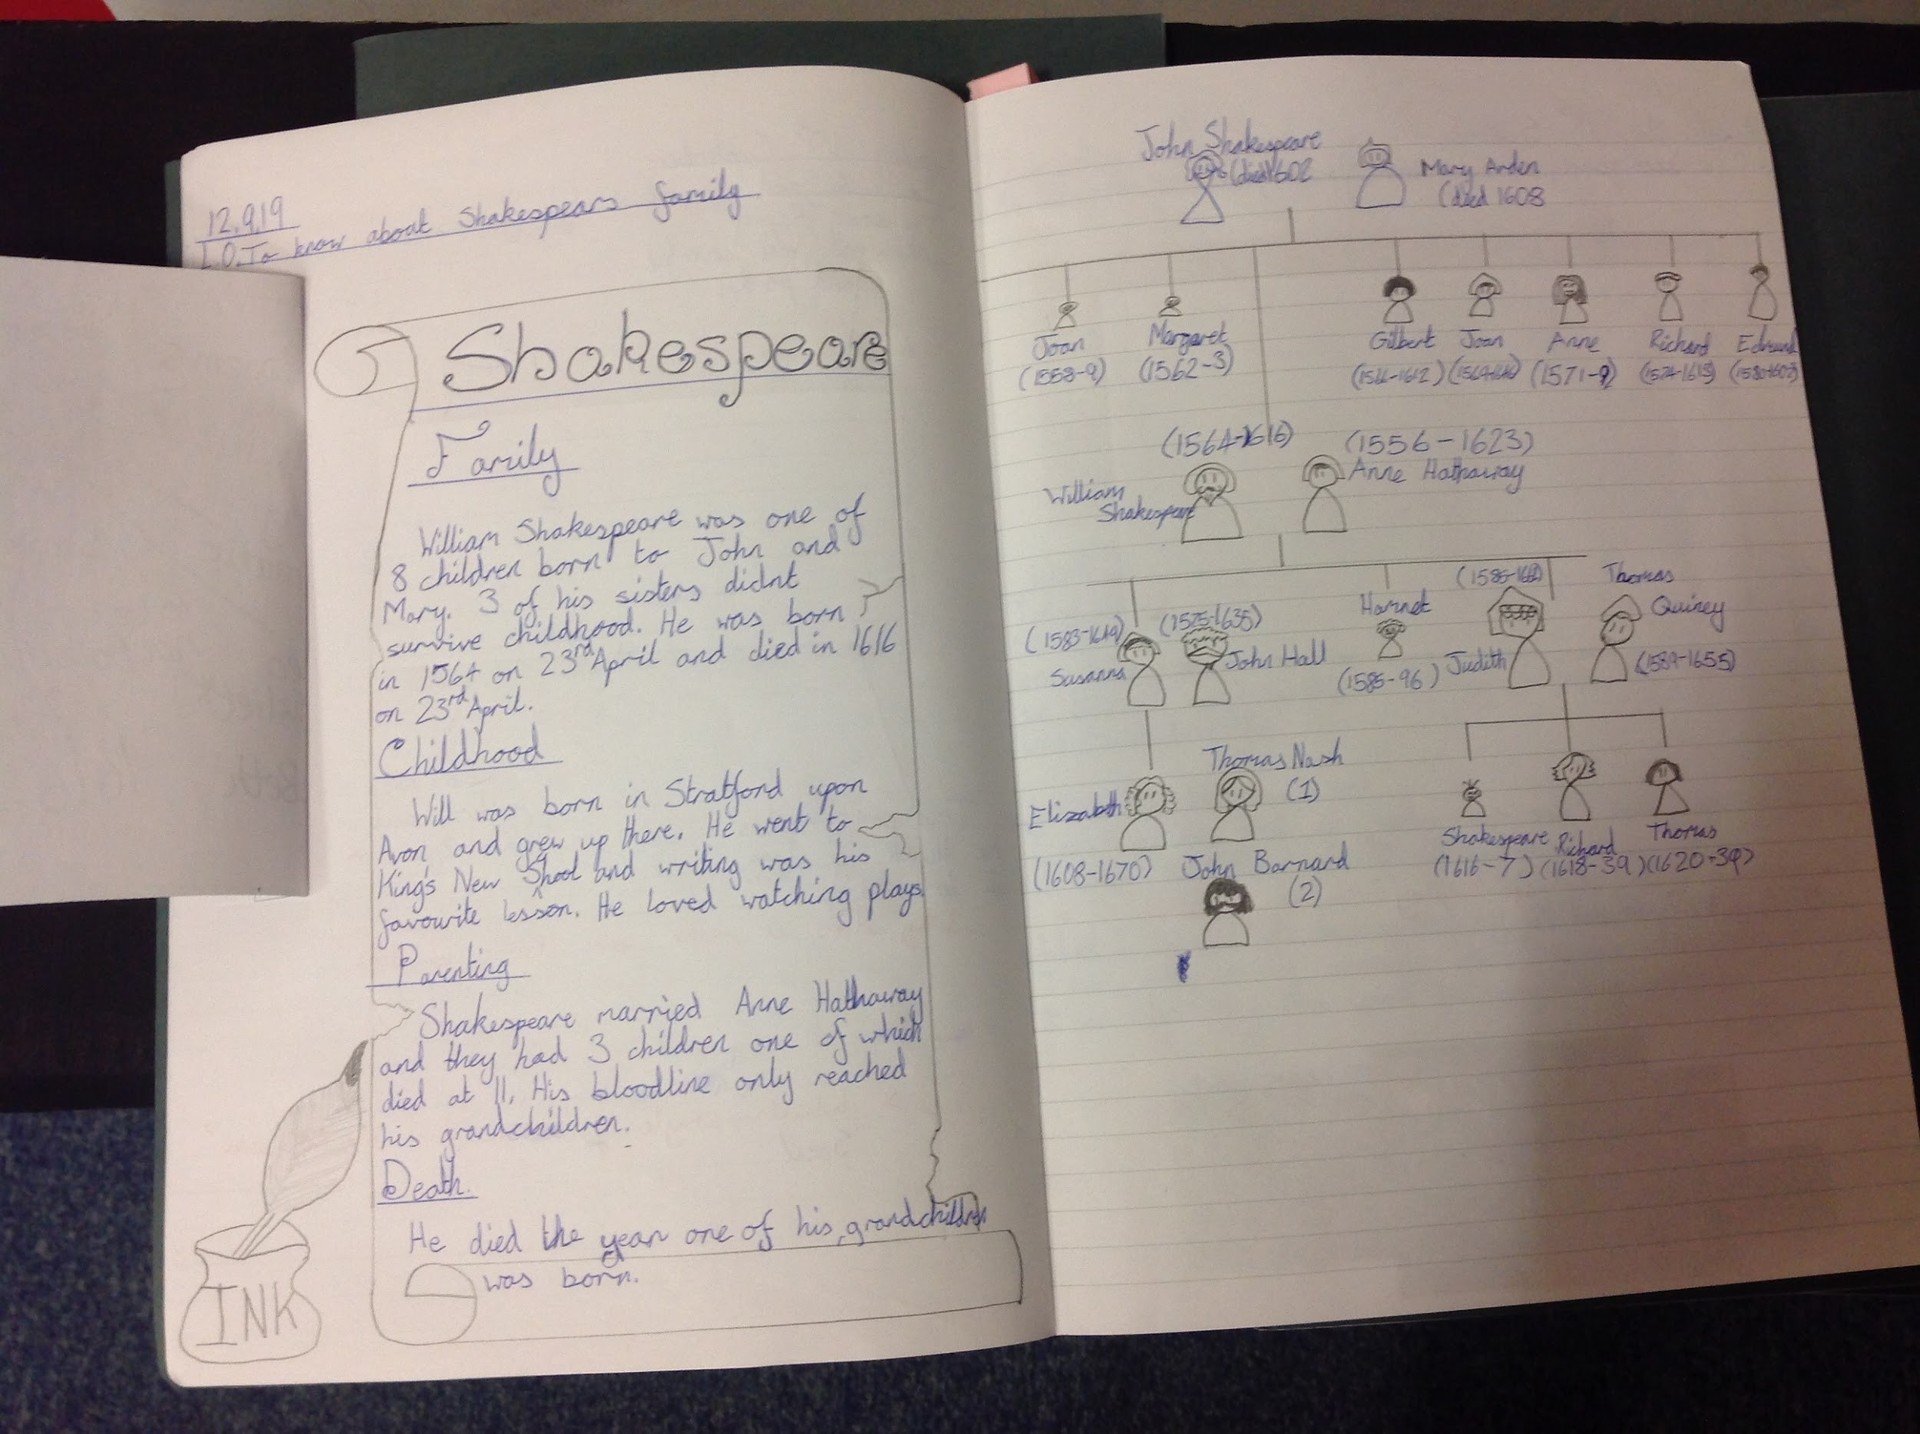 12.9.19
L.O. To know about Shakespears family
Shakespeare
Family
William Shakespeare was one of
8 children born to John and
Mary. 3 of his sisters didnt
survive childhood. He was born
in 1564 on 23rd April and died in 1616
on 23rd April.
Childhood
Will was born in Stratford upon
Avon and grew up there. He went to
King's New Shool and writing was his
favourite lesson. He loved watching plays
Parenting
Shakespeare married Anne Hathaway
and they had 3 children one of which
died at 11. His bloodline only reached
his grandchildren.
Death.
He died the year one of his grandchildren
was born.
INK
John Shakespeare
(died 1602
Mary Arden
(died 1608
Joan
(1558-9)
Margaret
(1562-3)
Gilbert
(1566-1612)
Joan
Anne
(1571-9)
Richard
(1574-1613)
Edmund
(1580-1607)
(1564-1616)
William
Shakespeare
(1556-1623)
Anne Hathaway
(1583-1649)
Susanna
(1575-1635)
John Hall
Hamnet
(1585-96)
Judith
Thomas
Quiney
(1589-1655)
Elizabeth
(1608-1670)
Thomas Nash
(1)
John Barnard
(2)
Shakespeare
(1616-7)
Richard
(1618-39)
Thomas
(1620-39)